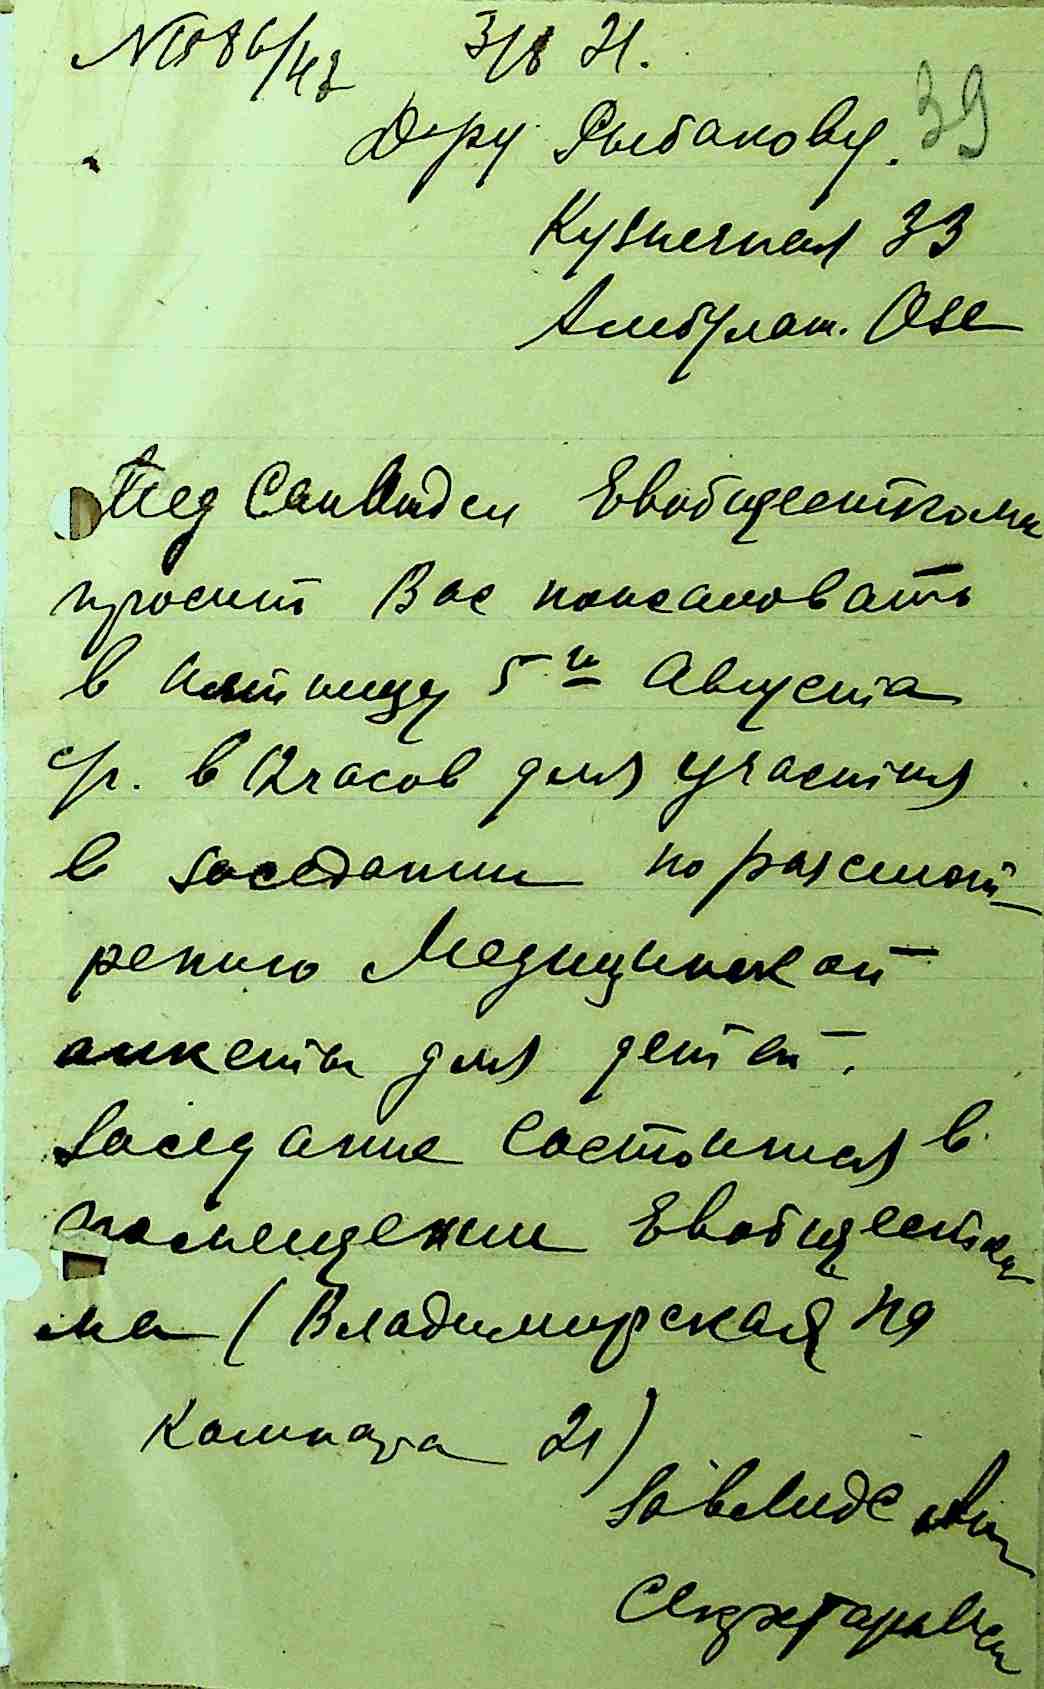 № 1886/42 3/8 21.
39
Д-ру Рыбакову.
Кузнечная 33
Амбулат. Озе
Мед Сан Отдел Евобщесткома
просит Вас пожаловать
в пятницу 5го Августа
с/г. в 12 часов для участия
в заседании по рассмот-
рению Медицинской
анкеты для детей.
Заседание состоится в
помещении Евобщестко
ма (Владимирская 49
комната 21)
Зав
Секретарь